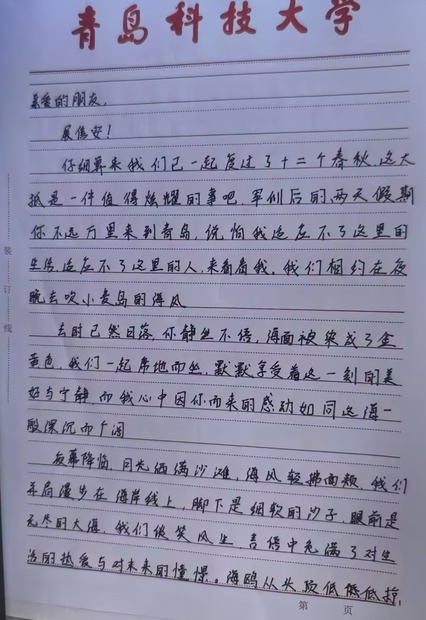 青岛科技大学
亲爱的朋友,
展信安!
仔细算来我们已一起度过了十二个春秋,这大
抵是一件值得炫耀的事吧,军训后的两天假期
你不远万里来到青岛,说怕我适应不了这里的
生活,适应不了这里的人,来看看我。我们相约在夜
晚去吹小麦岛的海风
去时已然日落,你静坐不语,海面被染成了金
黄色,我们一起席地而坐,默默享受着这一刻的美
好与宁静,而我心中因你而来的感动如同这海一
般深沉而广阔
夜幕降临,月光洒满沙滩,海风轻拂面颊,我们
并肩漫步在海岸线上,脚下是细软的沙子,眼前是
无尽的大海,我们谈笑风生,言语中充满了对生
活的热爱与对未来的憧憬。海鸥从头顶低低低掠,
装
订
线
第 页